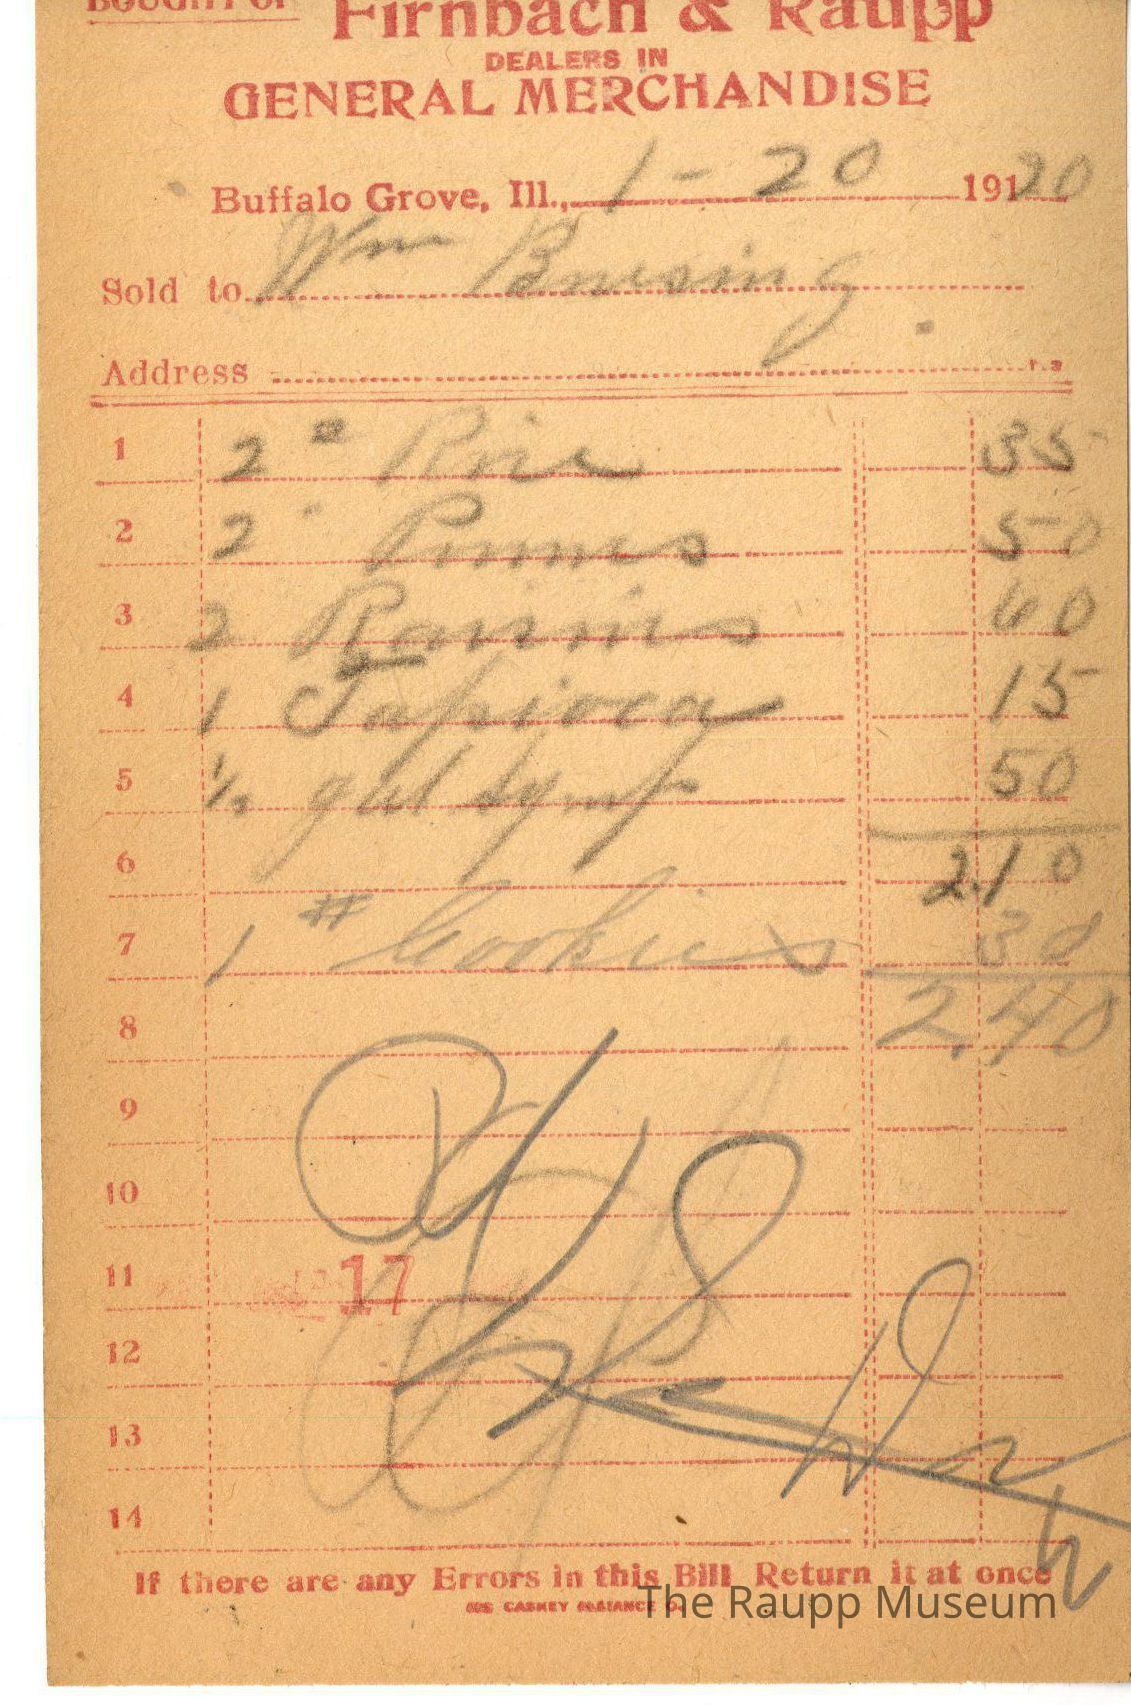 BOUGHT OF Firnbach & Raupp
DEALERS IN
GENERAL MERCHANDISE
Buffalo Grove, Ill., 1-20 191 20
Sold to Wm Buesing
Address
1 2 # Rice 35
2 2 " Prunes 50
3 2 Raisins 60
4 1 Tapioca 15
5 1/2 gal syrup 50
6 2.10
7 1 # Cookies 30
8 2.40
9
10
11 17
12
13
14
If there are any Errors in this Bill Return it at once
The Raupp Museum